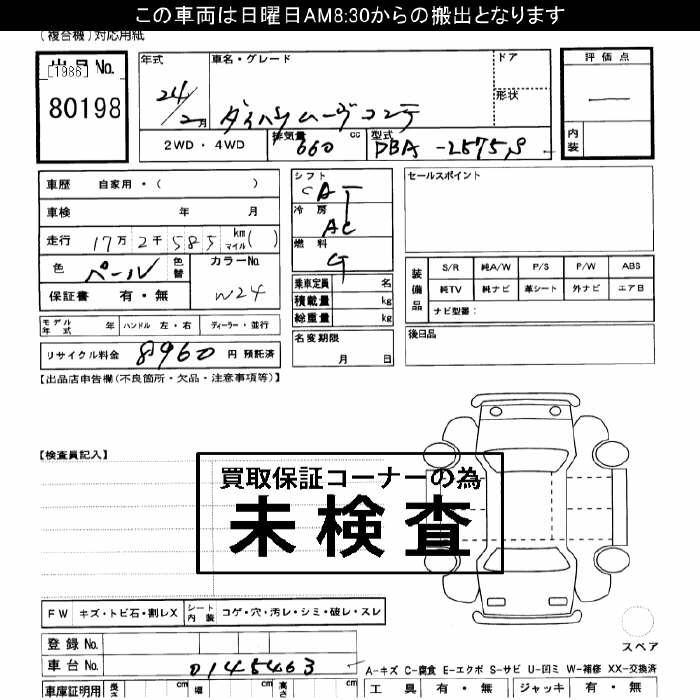 この車両は日曜日AM8:30からの搬出となります
(複合機)対応用紙
出品No.
[1986]
80198
年式 車名・グレード ドア
24/2月 ダイハツムーヴコンテ 形状
2WD・4WD 排気量 660 cc 型式 DBA-L575S
評価点
―
内装
車歴 自家用・( )
車検 年 月
走行 17万2千585 km マイル( )
色 パール 色替 カラーNo. W24
保証書 有・無
モデル年式 年 ハンドル 左・右 ディーラー・並行
リサイクル料金 8960 円 預託済
シフト CAT
冷房 AC
燃料 G
乗車定員 名
積載量 kg
総重量 kg
名変期限
月 日
セールスポイント
装備品 S/R 純A/W P/S P/W ABS
純TV 純ナビ 革シート 外ナビ エアB
ナビ型番:
後日品
【出品店申告欄(不良箇所・欠品・注意事項等)】
【検査員記入】
買取保証コーナーの為
未検査
FW キズ・トビ石・割レX シート内装 コゲ・穴・汚レ・シミ・破レ・スレ
登録No.
車台No. 0145463
スペア
A-キズ C-腐食 E-エクボ S-サビ U-凹ミ W-補修 XX-交換済
車庫証明用 長さ cm 幅 cm 高さ cm 工具 有・無 ジャッキ 有・無